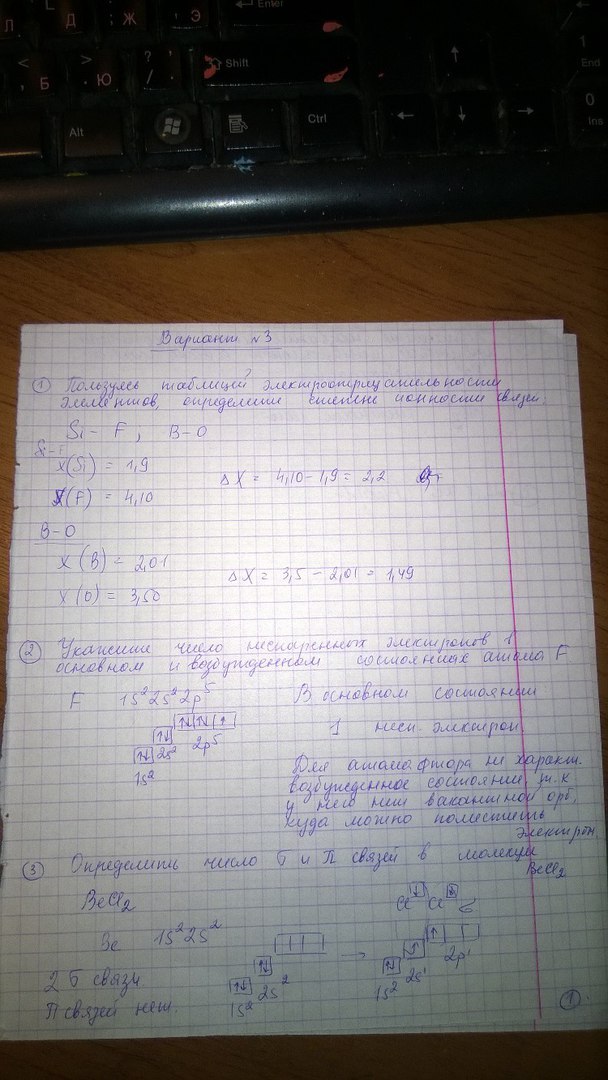 Л
Д
; Ж
, Э
Enter
< , Б
> . Ю
? / .
Shift
1 End
Alt
Ctrl
0 Ins
Вариант №3
① Пользуясь таблицей электроотрицательности
элементов, определите степень ионности связей
Si - F, B-O
Si-F
X(Si) = 1,9
Δ X = 4,10-1,9 = 2,2
X(F) = 4,10
B-O
X(B) = 2,01
Δ X = 3,5 - 2,01 = 1,49
X(O) = 3,50
② Укажите число неспаренных электронов в
основном и возбужденном состояниях атома F
F 1s² 2s² 2p⁵
В основном состоянии
1 несп. электрон
2p⁵
2s²
1s²
Для атома фтора не характ.
возбужденное состояние, т.к
у него нет вакантной орб,
куда можно поместить
электрон
③ Определить число σ и π связей в молекуле
BeCl₂
BeCl₂
Cl Cl σ
Be 1s² 2s²
→
2p¹
2 σ связи
2s²
1s²
2s¹
1s²
π связей нет.
①